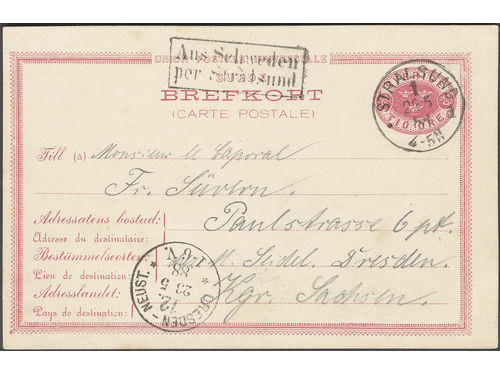 Aus Schweden
per Stralsund
UNION POSTALE UNIVERSELLE
SUÈDE
BREFKORT
(CARTE POSTALE)
TIO ÖRE
STRALSUND
1
4-5N
Till (à) Monsieur le Caporal
Fr.
Paulstrasse 6 pt.
Adressatens bostad:
Adresse du destinataire:
M. Seidel. Dresden.
Bestämmelseorten:
Lieu de destination:
Kgr. Sachsen.
Adresslandet:
Pays de destination:
DRESDEN - NEUST.
12
23 5
88